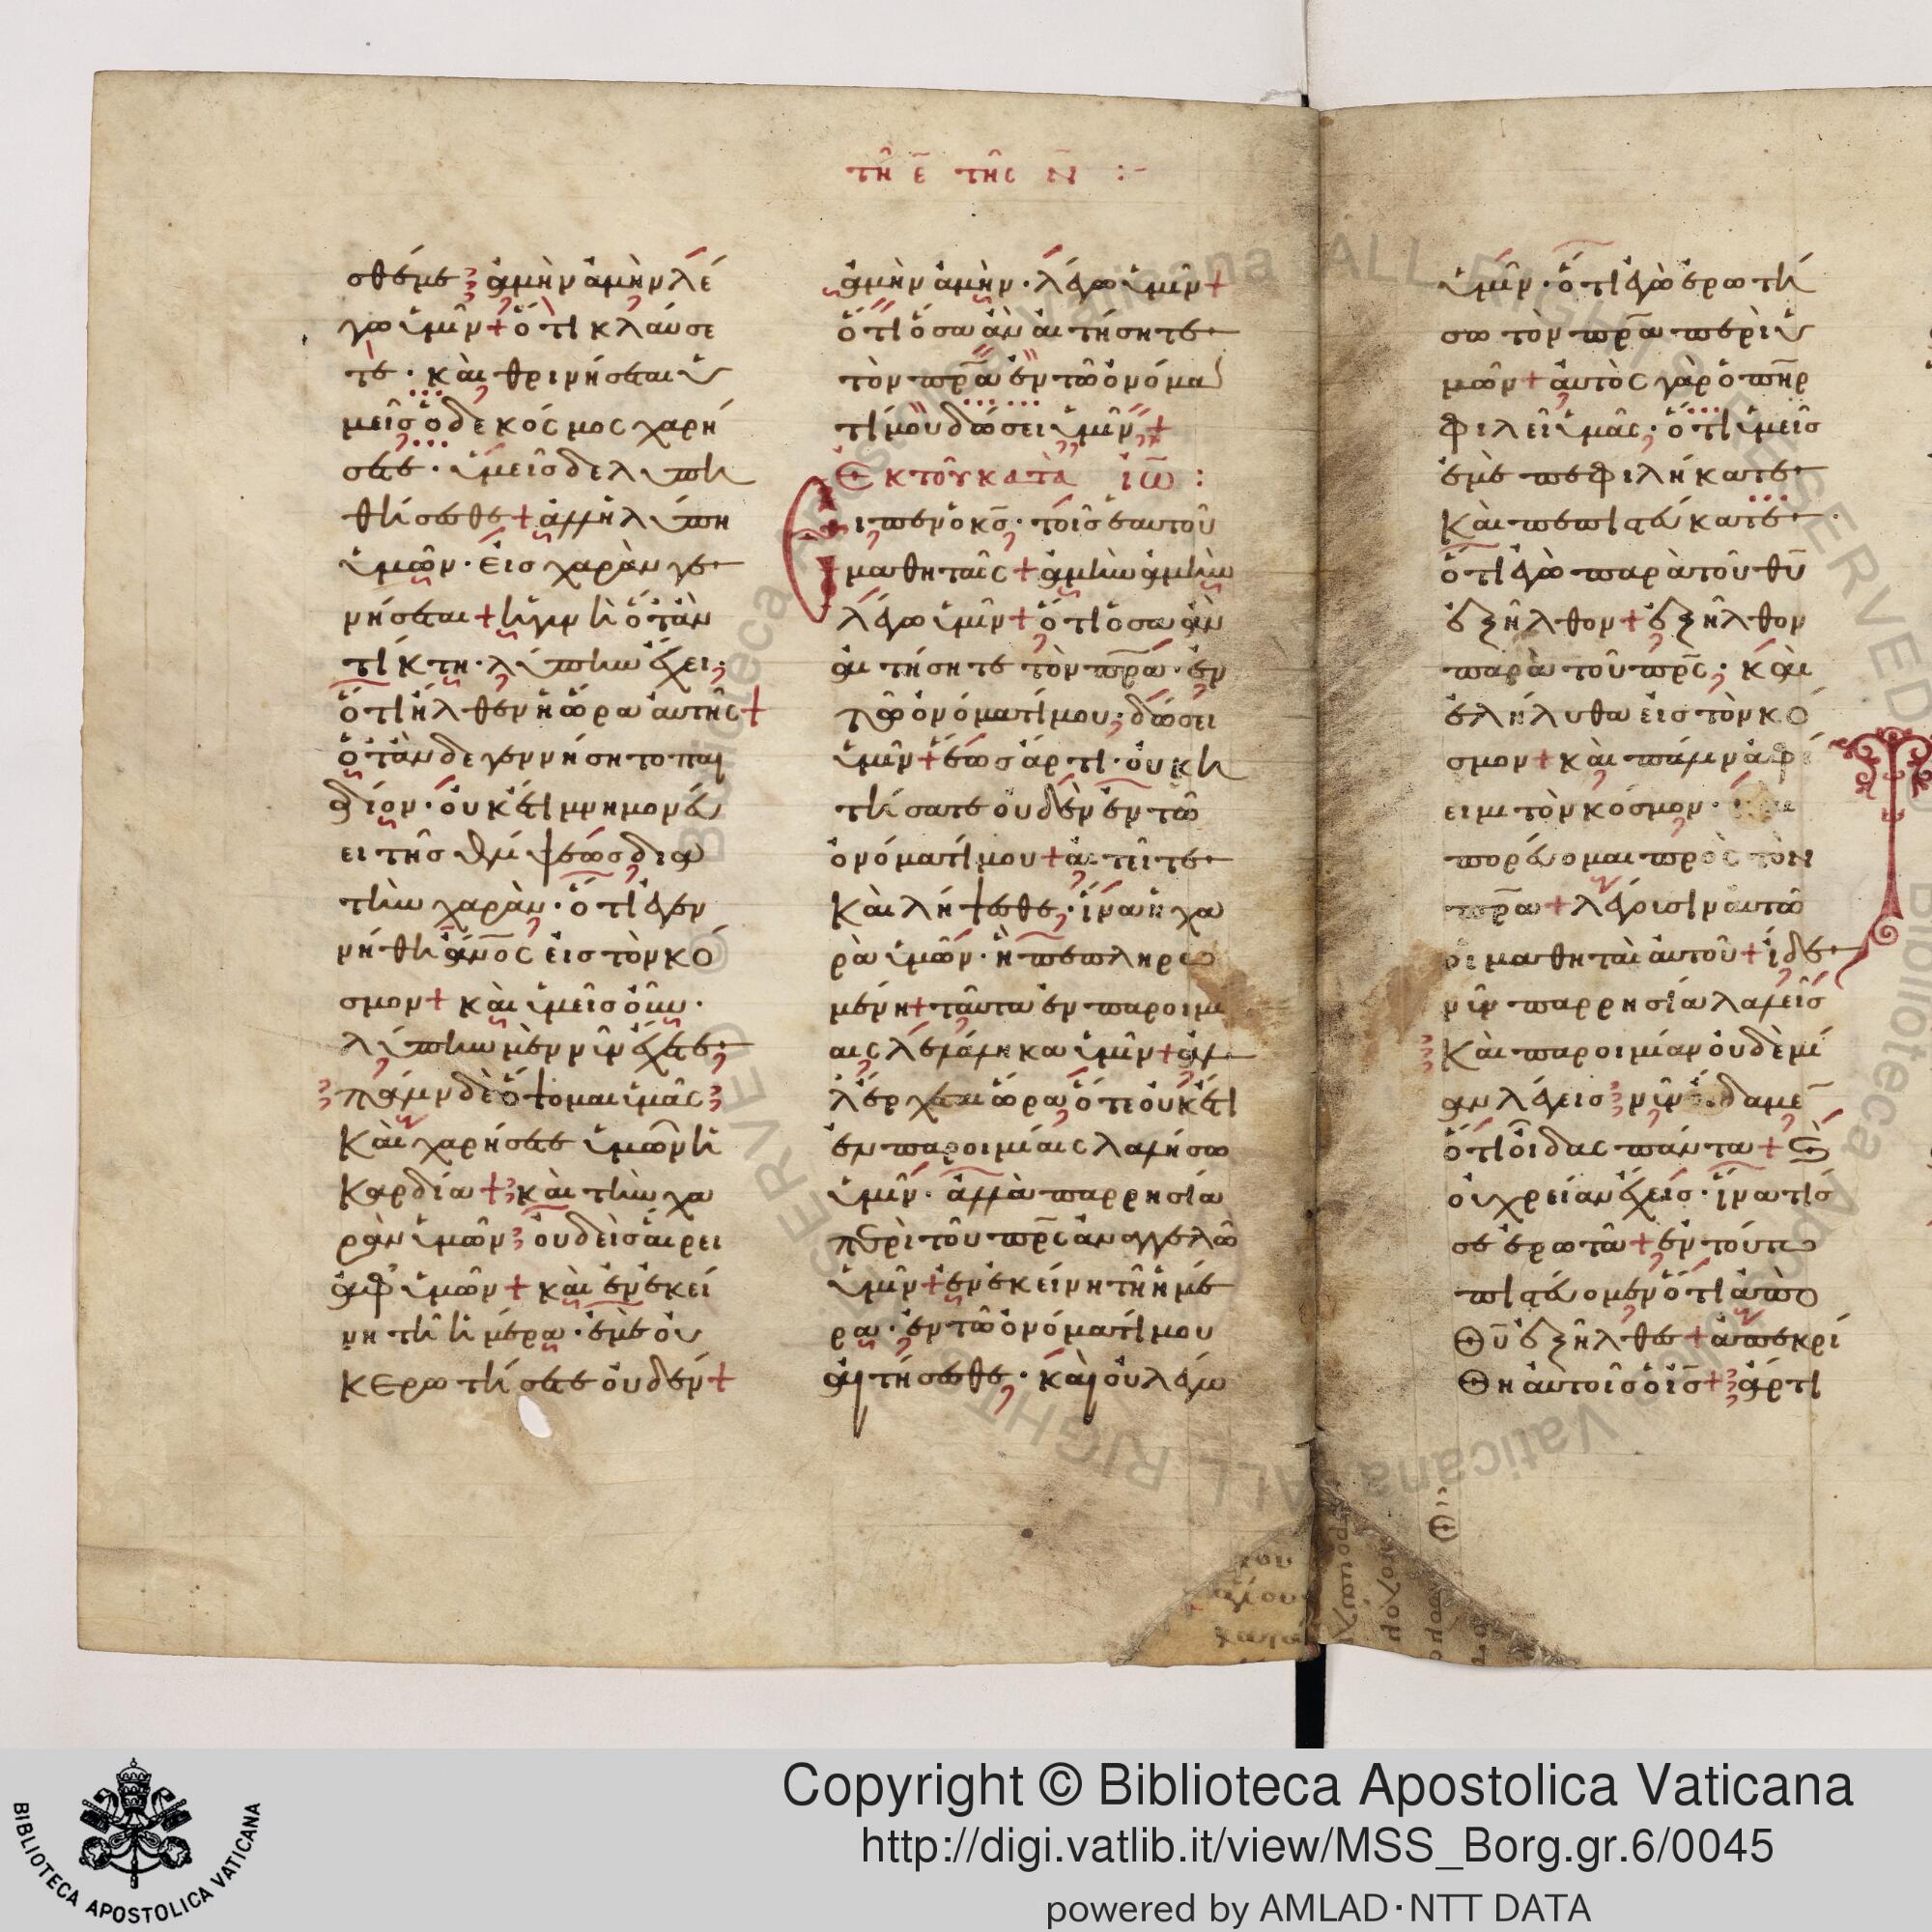 τῆ ε̄ τῆς Ν̄ :-
σθέμε ἀμὴν ἀμὴν λέ
γω ὑμῖν + ὅτι κλαύσε
τε · καὶ θρινήσεται ὑ
μεῖς ὁ δὲ κόσμος χαρή
σετε · ὑμεῖς δε λυπη
θήσεσθε + ἀλλη λύπη
ὑμῶν · εἰς χαρὰν γε
νήσεται + ἡ γυνὴ ὅταν
τίκτη · λύπην ἔχει
ὅτι ἦλθεν ἡ ὥρα αὐτῆς +
ὅταν δε γεννήση το παι
δίον · οὐκέτι μνημονεύ
ει τῆς θλίψεως δια
τὴν χαρὰν · ὅτι ἐγεν
νήθη ἄν̄ος εἰς τὸν κό
σμον + καὶ ὑμεῖς οὖν ·
λύπην μὲν νῦν ἔχετε
πάλιν δὲ ὄψομαι ὑμᾶς
Καὶ χαρήσετε ὑμῶν ἡ
Καρδία + καὶ τὴν χα
ρὰν ὑμῶν οὐδεὶς αἴρει
ἀφ' ὑμῶν + καὶ ἐν ἐκεί
νη τῆ ἡμέρα · ἐμὲ οὐ
κ ερωτήσετε οὐδέν +
ἀμὴν ἀμὴν · λέγω ὑμῖν +
ὅτι ὅσα ἂν αἰτήσητε
τὸν πρ̄α ἐν τῶ ὀνόμα
τί μου δώσει ὑμῖν +
Ἐκ τοῦ κατὰ ἰω̄ :
Εἶπεν ὁ κς̄ · τοῖς ἑαυτοῦ
μαθηταῖς + ἀμὴν ἀμὴν
λέγω ὑμῖν + ὅτι ὅσα ἂν
αἰτήσητε τὸν πρ̄α · ἐν
τῶ ὀνόματί μου · δώσει
ὑμῖν + ἕως ἄρτι · οὐκ ἠ
τήσατε οὐδὲν ἐν τῶ
ὀνόματί μου + αἰτεῖτε
Καὶ λήψεσθε · ἵνα ἡ χα
ρὰ ὑμῶν · ἦ πεπληρω
μένη + ταῦτα ἐν παροιμι
αις λελάληκα ὑμῖν + ἀλ
λ' ἔρχεται ὥρα ὅτε οὐκέτι
ἐν παροιμίαις λαλήσω
ὑμῖν · ἀλλὰ παρρησία
περὶ τοῦ πρ̄ς ἀναγγελῶ
ὑμῖν + ἐν ἐκείνη τῆ ἡμέ
ρα · ἐν τῶ ὀνόματί μου
αἰτήσεσθε · καὶ οὐ λέγω
ὑμῖν · ὅτι ἐγὼ ἐρωτή
σω τὸν πρ̄α περὶ ὑ
μῶν + αὐτὸς γὰρ ὁ πη̄ρ
φιλεῖ ὑμᾶς, ὅτι ὑμεῖς
ἐμὲ πεφιλήκατε
Καὶ πεπιστεύκατε ·
ὅτι ἐγὼ παρὰ τοῦ θῡ
ἐξῆλθον + ἐξῆλθον
παρὰ τοῦ πρ̄ς · καὶ
ἐλήλυθα εἰς τὸν κό
σμον + καὶ πάλιν ἀφί
ειμι τὸν κόσμον ·
πορεύομαι πρὸς τὸν
πρ̄α + λέγουσιν αὐτῶ
οἱ μαθηταὶ αὐτοῦ + ἴδε
νῦν παρρησία λαλεῖς
Καὶ παροιμίαν οὐδεμί
αν λέγεις νῦν οἴδαμε̄
ὅτι οἶδας πάντα + Καὶ
οὐ χρείαν ἔχεις · ἵνα τίς
σε ἐρωτᾶ + ἐν τούτω
πιστεύομεν ὅτι ἀπὸ
Θῡ ἐξῆλθες + ἀπεκρί
θη αὐτοῖς ὁ ις̄ + ἄρτι
χου
ἁγίου
© Biblioteca Apostolica Vaticana ALL RIGHTS RESERVED
BIBLIOTECA APOSTOLICA VATICANA
Copyright © Biblioteca Apostolica Vaticana
http://digi.vatlib.it/view/MSS_Borg.gr.6/0045
powered by AMLAD·NTT DATA